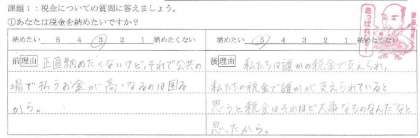 課題１：税金についての質問に答えましょう。
①あなたは税金を納めたいですか？
納めたい 5 4 3 2 1 納めたくない 納めたい 5 4 3 2 1 納めたくない
前理由 正直納めたくないけど、それで公共の
場で払うお金が高くなるのは困る
から。
後理由 私たちは誰かの税金で支えられ、
私たちの税金で誰かが支えられていると
思うと税金はそれほど大事なものなんだなと
思ったから。